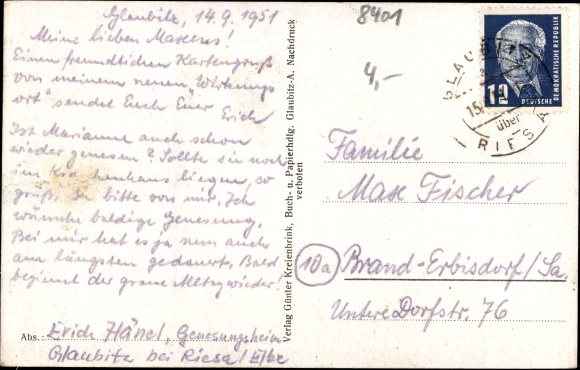 Glaubitz, 14.9.1951
Meine lieben Maxens!
Einen freundlichen Kartengruß
von meinem neuen „Wirkungs
ort" sendet Euch Euer Erich
Ist Marianne auch schon
wieder genesen? Sollte sie noch
im Krankenhaus liegen, so
grüßt sie bitte von mir, Ich
wünsche baldige Genesung.
Bei mir hat es ja nun auch
am längsten gedauert, Bald
beginnt der graue Alltag wieder!
Abs. Erich Hänel, Genesungsheim
Glaubitz bei Riesa/Elbe
Verlag Günter Kreienbrink, Buch- u. Papierhdlg. Glaubitz-A. Nachdruck
verboten
8401
4,-
12
DEUTSCHE DEMOKRATISCHE REPUBLIK
GLAUBITZ
über
RIESA
Familie
Max Fischer
10a Brand-Erbisdorf/Sa.
Untere Dorfstr. 76